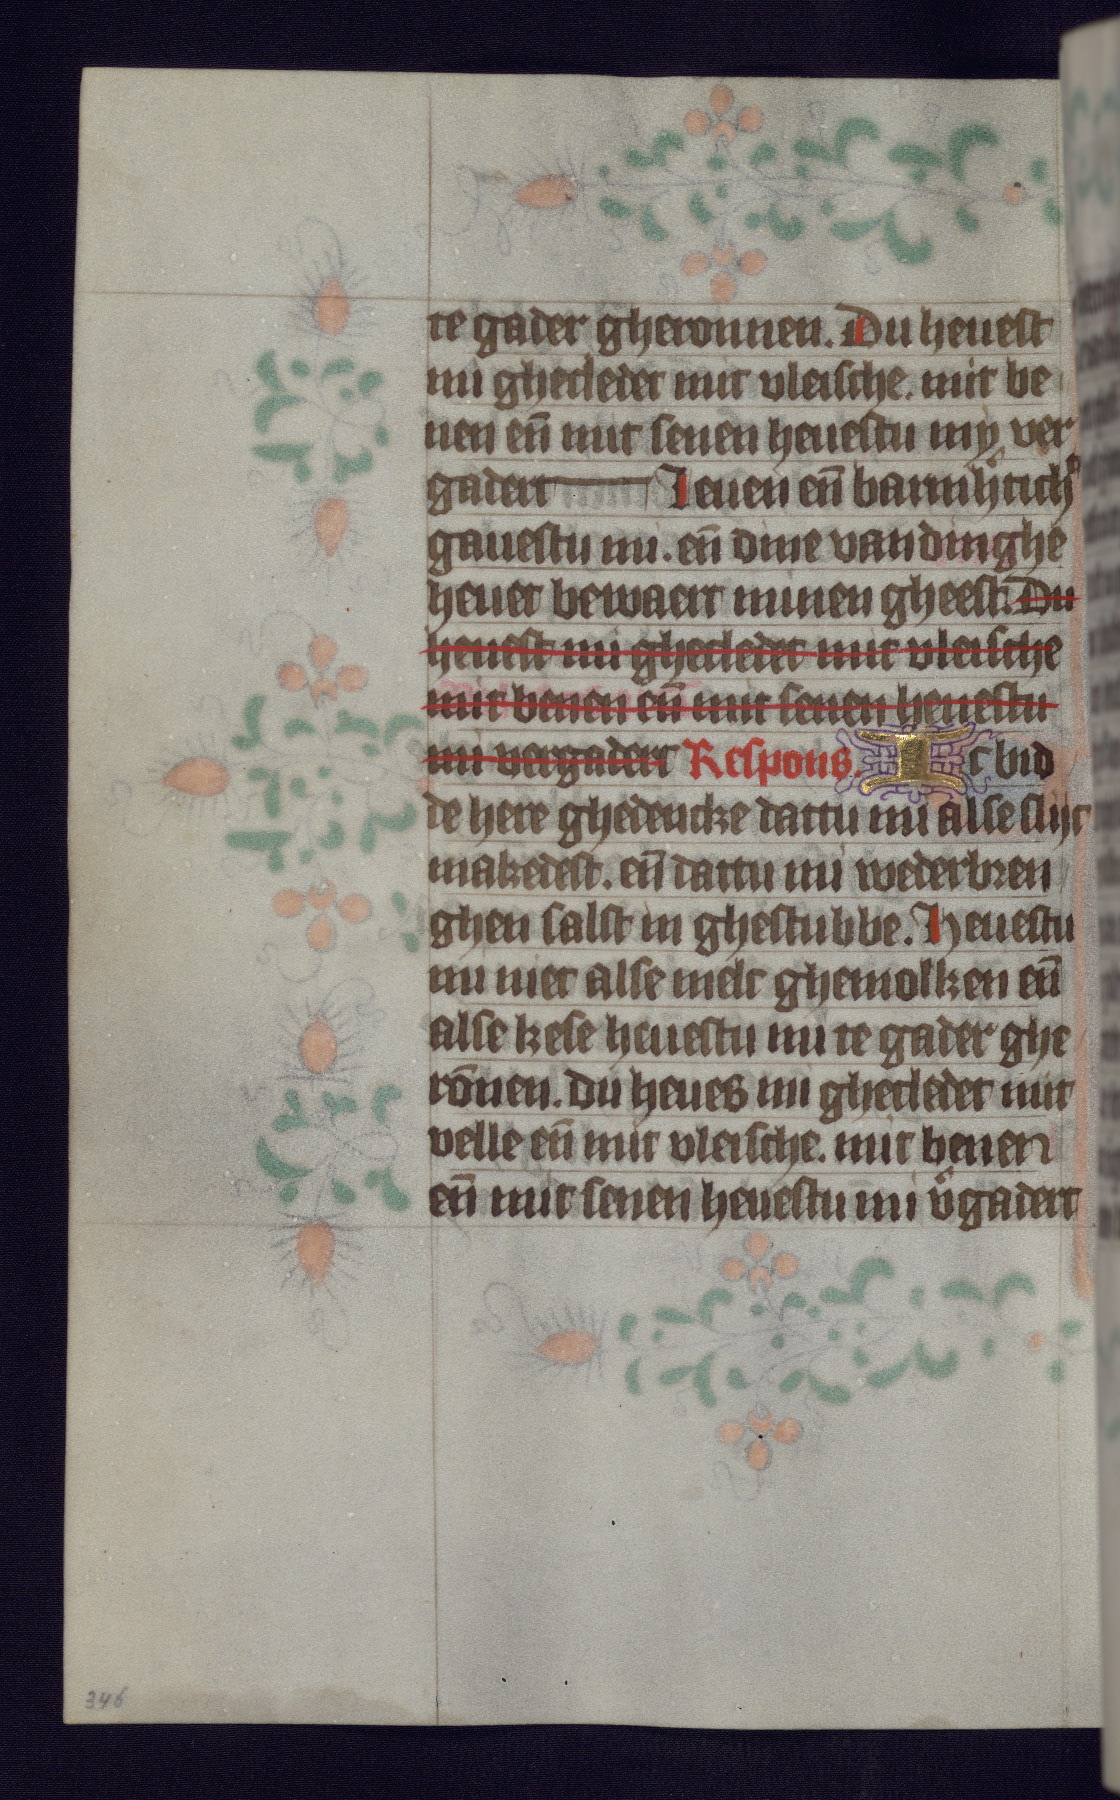 te gader gheronnen. Du heuest
mi ghecledet mit vleische. mit be
nen eñ mit senen heuestu my ver
gadert Leuen eñ barmh̾tich
gauestu mi. eñ dine vandinghe
heuet bewaert minen gheest. Du
heuest mi ghecledet mit vleische
mit benen eñ mit senen heuestu
mi vergadert Respons. Ic bid
de here ghedencke dattu mi alse slijc
makedest. eñ dattu mi wederbren
ghen salst in ghestubbe. Heuestu
mi niet alse melc ghemolken eñ
alse kese heuestu mi te gader ghe
rōnen. Du heues mi ghecledet mit
velle eñ mit vleische. mit benen
eñ mit senen heuestu mi v̾gadert
346